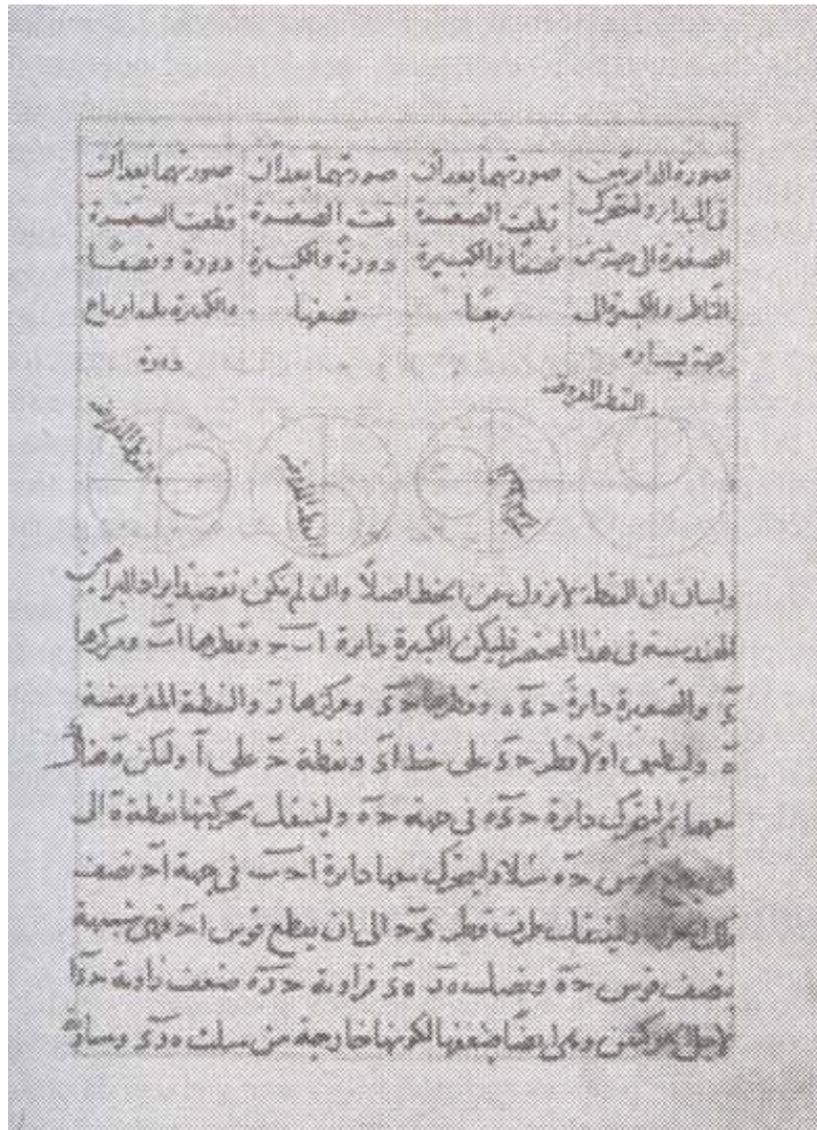 صورة الدائرتين
في المبدا ولتتحرك
الصغيرة الى جهة يمين
الناظر والكبيرة الى
جهة يساره
صورتهما بعد أن
قطعت الصغيرة
نصفًا والكبيرة
ربعًا
صورتهما بعد أن
تمت الصغيرة
دورةً والكبيرة
نصفها
صورتهما بعد أن
قطعت الصغيرة
دورة ونصفًا
والكبيرة ثلثة ارباع
دورة
النقطة المفروضة
النقطة المفروضة
النقطة المفروضة
ولبيان ان النقطة لا تزول عن الخط اصلًا وان لم يكن نقصد ايراد البراهين
الهندسية في هذا المختصر فليكن الكبيرة دايرة اب ح وقطرها اب ومركزها
ء والصغيرة دايرةً ح ء ه وقطرها ح ء ومركزها ز والنقطة المفروضة
ه وليطبق اولًا قطر ح ء على خط ا ء ونقطة ح على آ ولكن ه هناك
معهما ثم لتتحرك دايرة ح ء ه في جهة ح ه ولينتقل بحركتها نقطة ه الى
ان قوس ح ه مثلا وليتحرك معها دايرة ا ح ب في جهة ا ح نصف
تلك الحركة ولينتقل طرف قطر ء ح الى ان يقطع قوس ا ح فهي شبيهة
بنصف قوس ح ه ونصل ه ز ه ء فزاوية ح ز ه ضعف زاوية ح ء ا
لاجل الحركتين وهي ايضًا ضعفها لكونها خارجة من مثلث ه ز ء